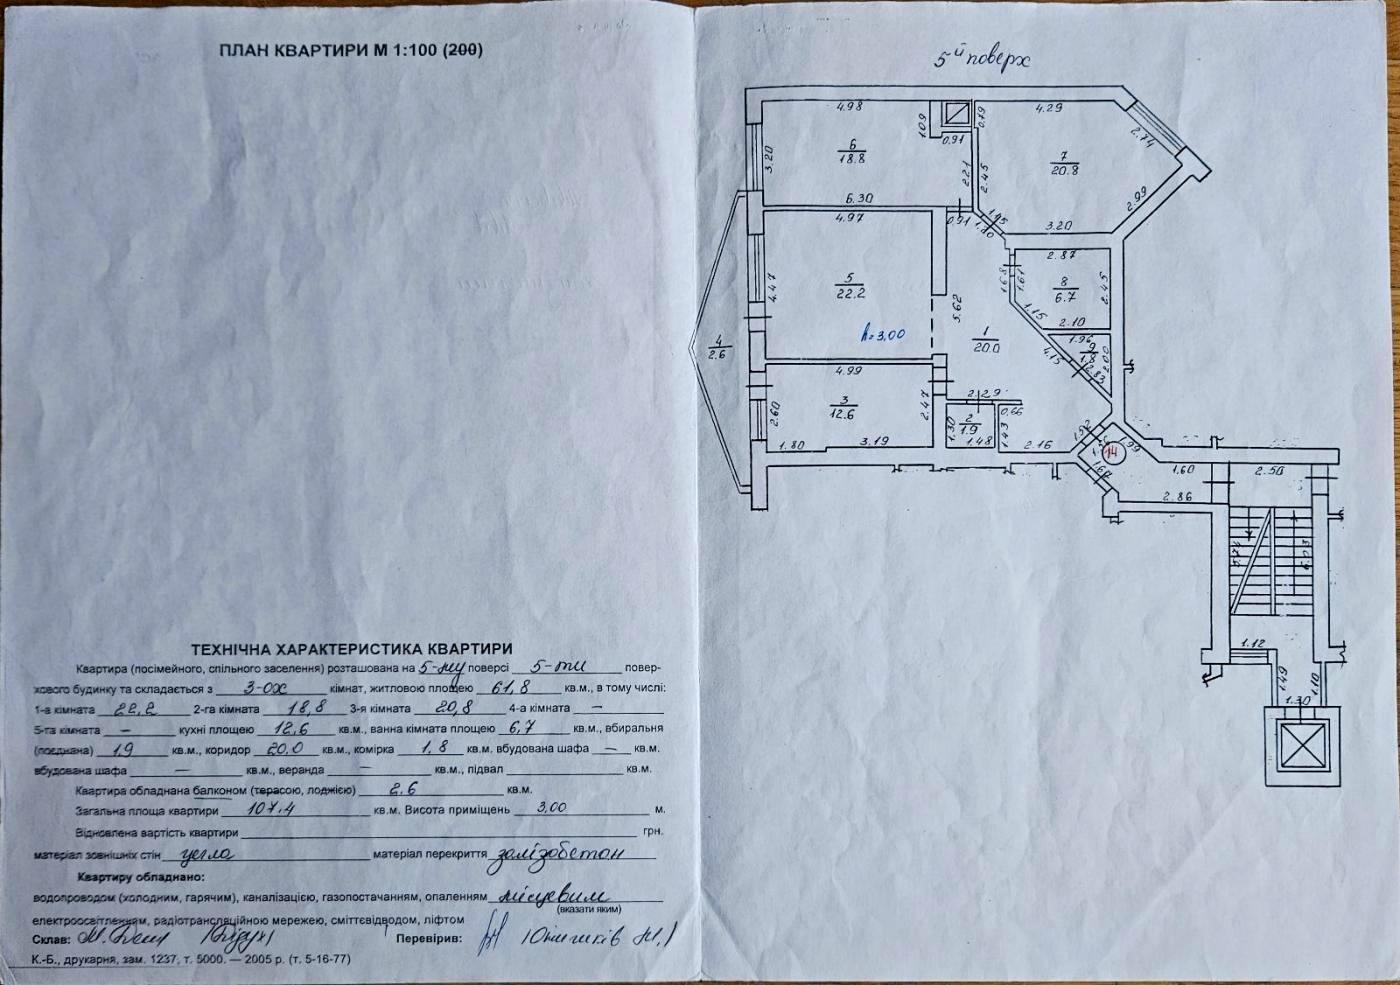 ПЛАН КВАРТИРИ М 1:100 (200)
ТЕХНІЧНА ХАРАКТЕРИСТИКА КВАРТИРИ
Квартира (посімейного, спільного заселення) розташована на 5-му поверсі 5-ти повер-
хового будинку та складається з 3-ох кімнат, житловою площею 61,8 кв.м., в тому числі:
1-а кімната 22,2 2-га кімната 18,8 3-я кімната 20,8 4-а кімната —
5-та кімната — кухні площею 12,6 кв.м., ванна кімната площею 6,7 кв.м., вбиральня
(поєднана) 1,9 кв.м., коридор 20,0 кв.м., комірка 1,8 кв.м. вбудована шафа — кв.м.
вбудована шафа — кв.м., веранда — кв.м., підвал кв.м.
Квартира обладнана балконом (терасою, лоджією) 2,6 кв.м.
Загальна площа квартири 107,4 кв.м. Висота приміщень 3,00 м.
Відновлена вартість квартири грн.
матеріал зовнішніх стін цегла матеріал перекриття залізобетон
Квартиру обладнано:
водопроводом (холодним, гарячим), каналізацією, газопостачанням, опаленням місцевим
(вказати яким)
електроосвітленням, радіотрансляційною мережею, сміттєвідводом, ліфтом
Склав: Перевірив:
К.-Б., друкарня, зам. 1237, т. 5000. — 2005 р. (т. 5-16-77)
5й поверх
4.98
1.09
0.91
0.79
4.29
2.74
3.20
6
18.8
2.21
2.45
7
20.8
2.99
6.30
0.91
1.45
1.80
3.20
4.97
4.47
5
22.2
h=3,00
5.62
1
20.0
1.68
1.61
2.87
8
6.7
2.45
1.15
2.10
4
2.6
4.15
1.96
9
1.8
2.00
2.83
4.99
2.60
3
12.6
2.47
2.29
0.66
2
1.9
1.30
1.48
1.43
2.16
1.80
3.19
1.52
1.99
14
1.67
1.60
2.86
2.50
5.74
6.23
1.12
1.49
1.10
1.30